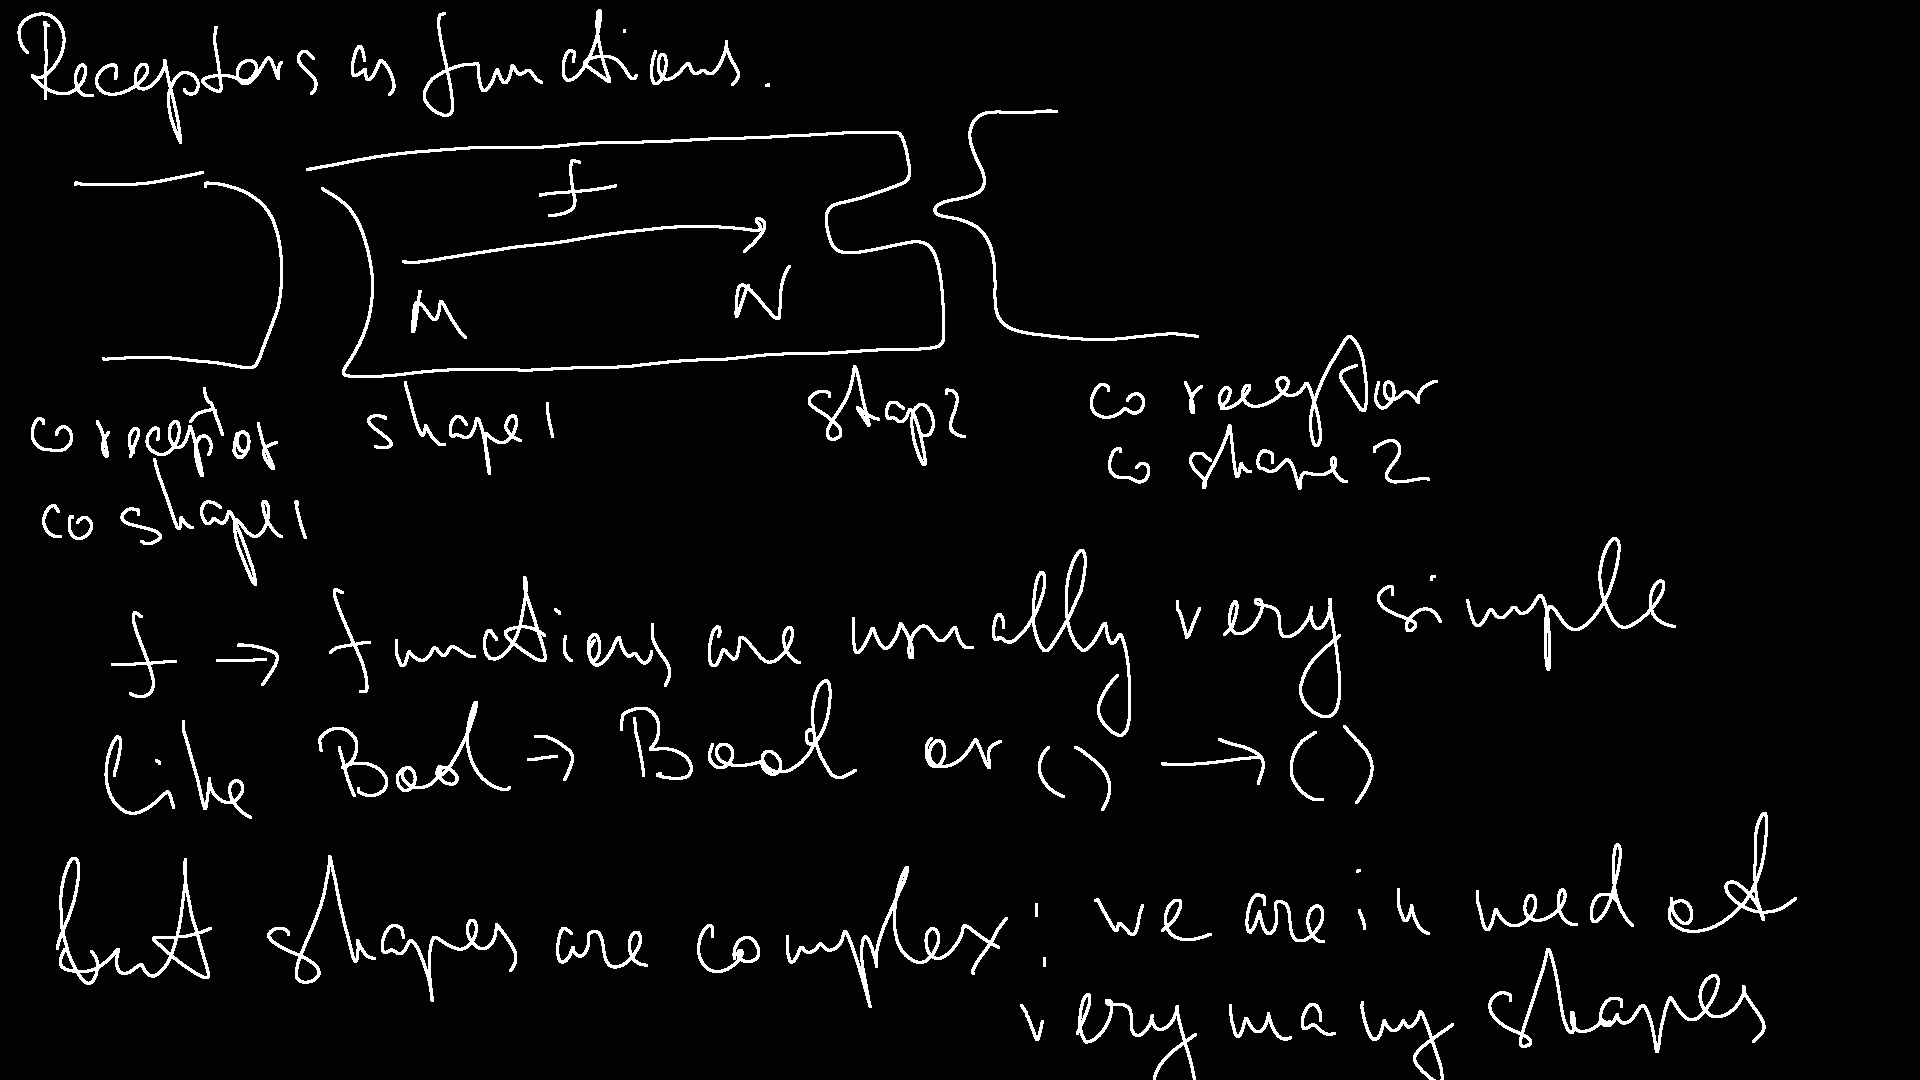 Receptors as functions.
f
M N
co receptor shape1 shap2 co receptor
co shape1 co shape 2
f → functions are usually very simple
like Bool → Bool or () → ()
but shapes are complex: we are in need of
very many shapes